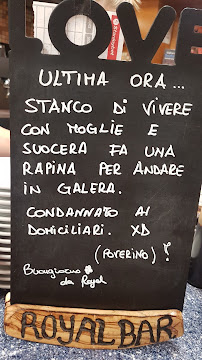 LOVE
ULTIMA ORA...
STANCO DI VIVERE
CON MOGLIE E
SUOCERA FA UNA
RAPINA PER ANDARE
IN GALERA.
CONDANNATO AI
DOMICILIARI. XD
(POVERINO)!
Buongiorno
da Royal
ROYAL BAR